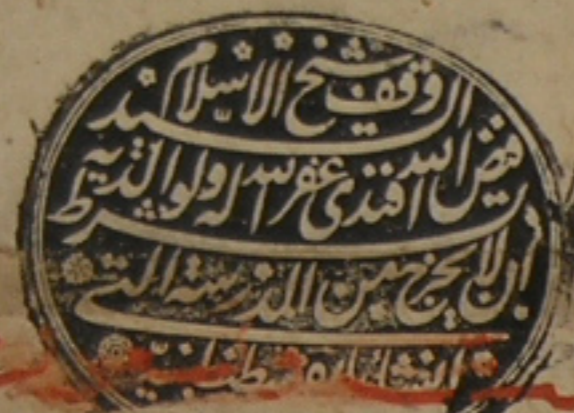 وقف شيخ الاسلام السيد
فيض الله افندى غفر الله له ولوالديه بشرط
ان لا يخرج من المدرسة التي
انشاها بقسطنطينية